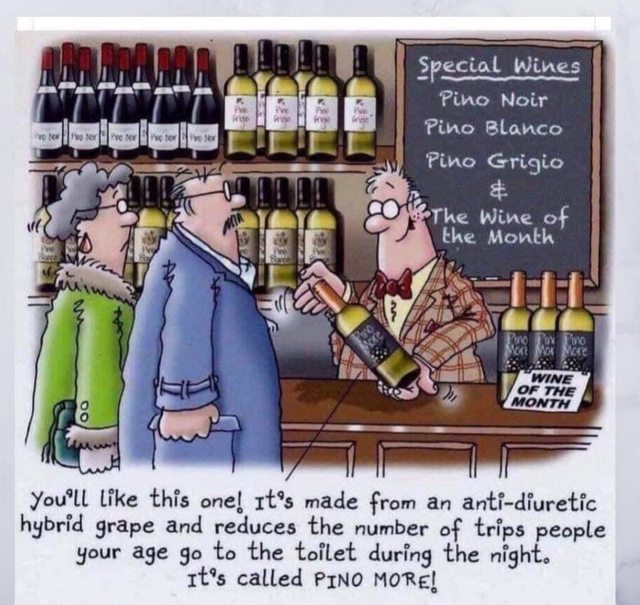 Special Wines
Pino Noir
Pino Blanco
Pino Grigio
&
The Wine of
the Month
Pino
More
Pino
More
Pino
More
WINE
OF THE
MONTH
You'll like this one! It's made from an anti-diuretic
hybrid grape and reduces the number of trips people
your age go to the toilet during the night.
It's called PINO MORE!